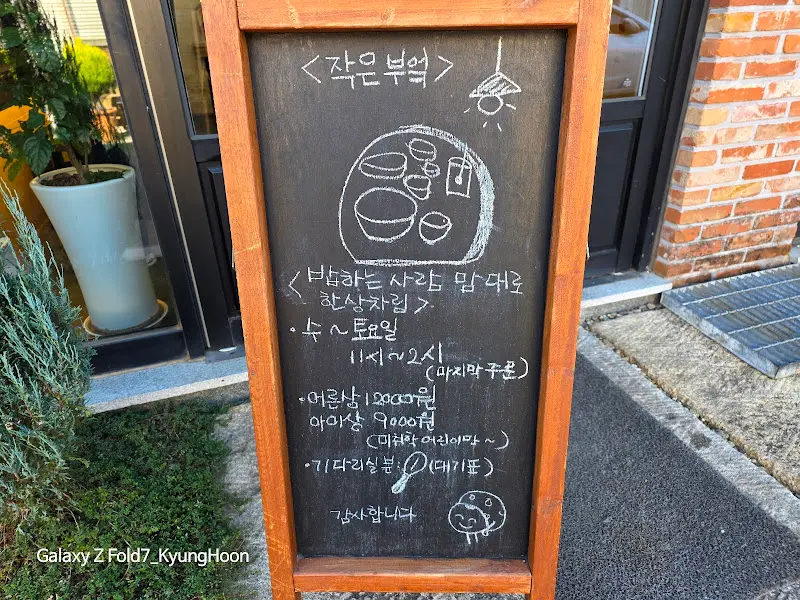 <작은부엌>
<밥하는 사람 맘대로
한상차림>
· 수 ~ 토요일
11시 ~ 2시
(마지막 주문)
· 어른상 12000원
아이상 9000원
(미취학 어린이만~)
· 기다리실분: (대기표)
감사합니다
Galaxy Z Fold7_KyungHoon